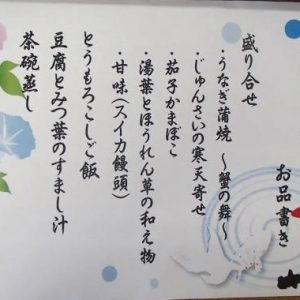 お品書き
盛り合せ
・うなぎ蒲焼 ～蟹の舞～
・じゅんさいの寒天寄せ
・茄子かまぼこ
・湯葉とほうれん草の和え物
・甘味(スイカ饅頭)
とうもろこしご飯
豆腐とみつ葉のすまし汁
茶碗蒸し